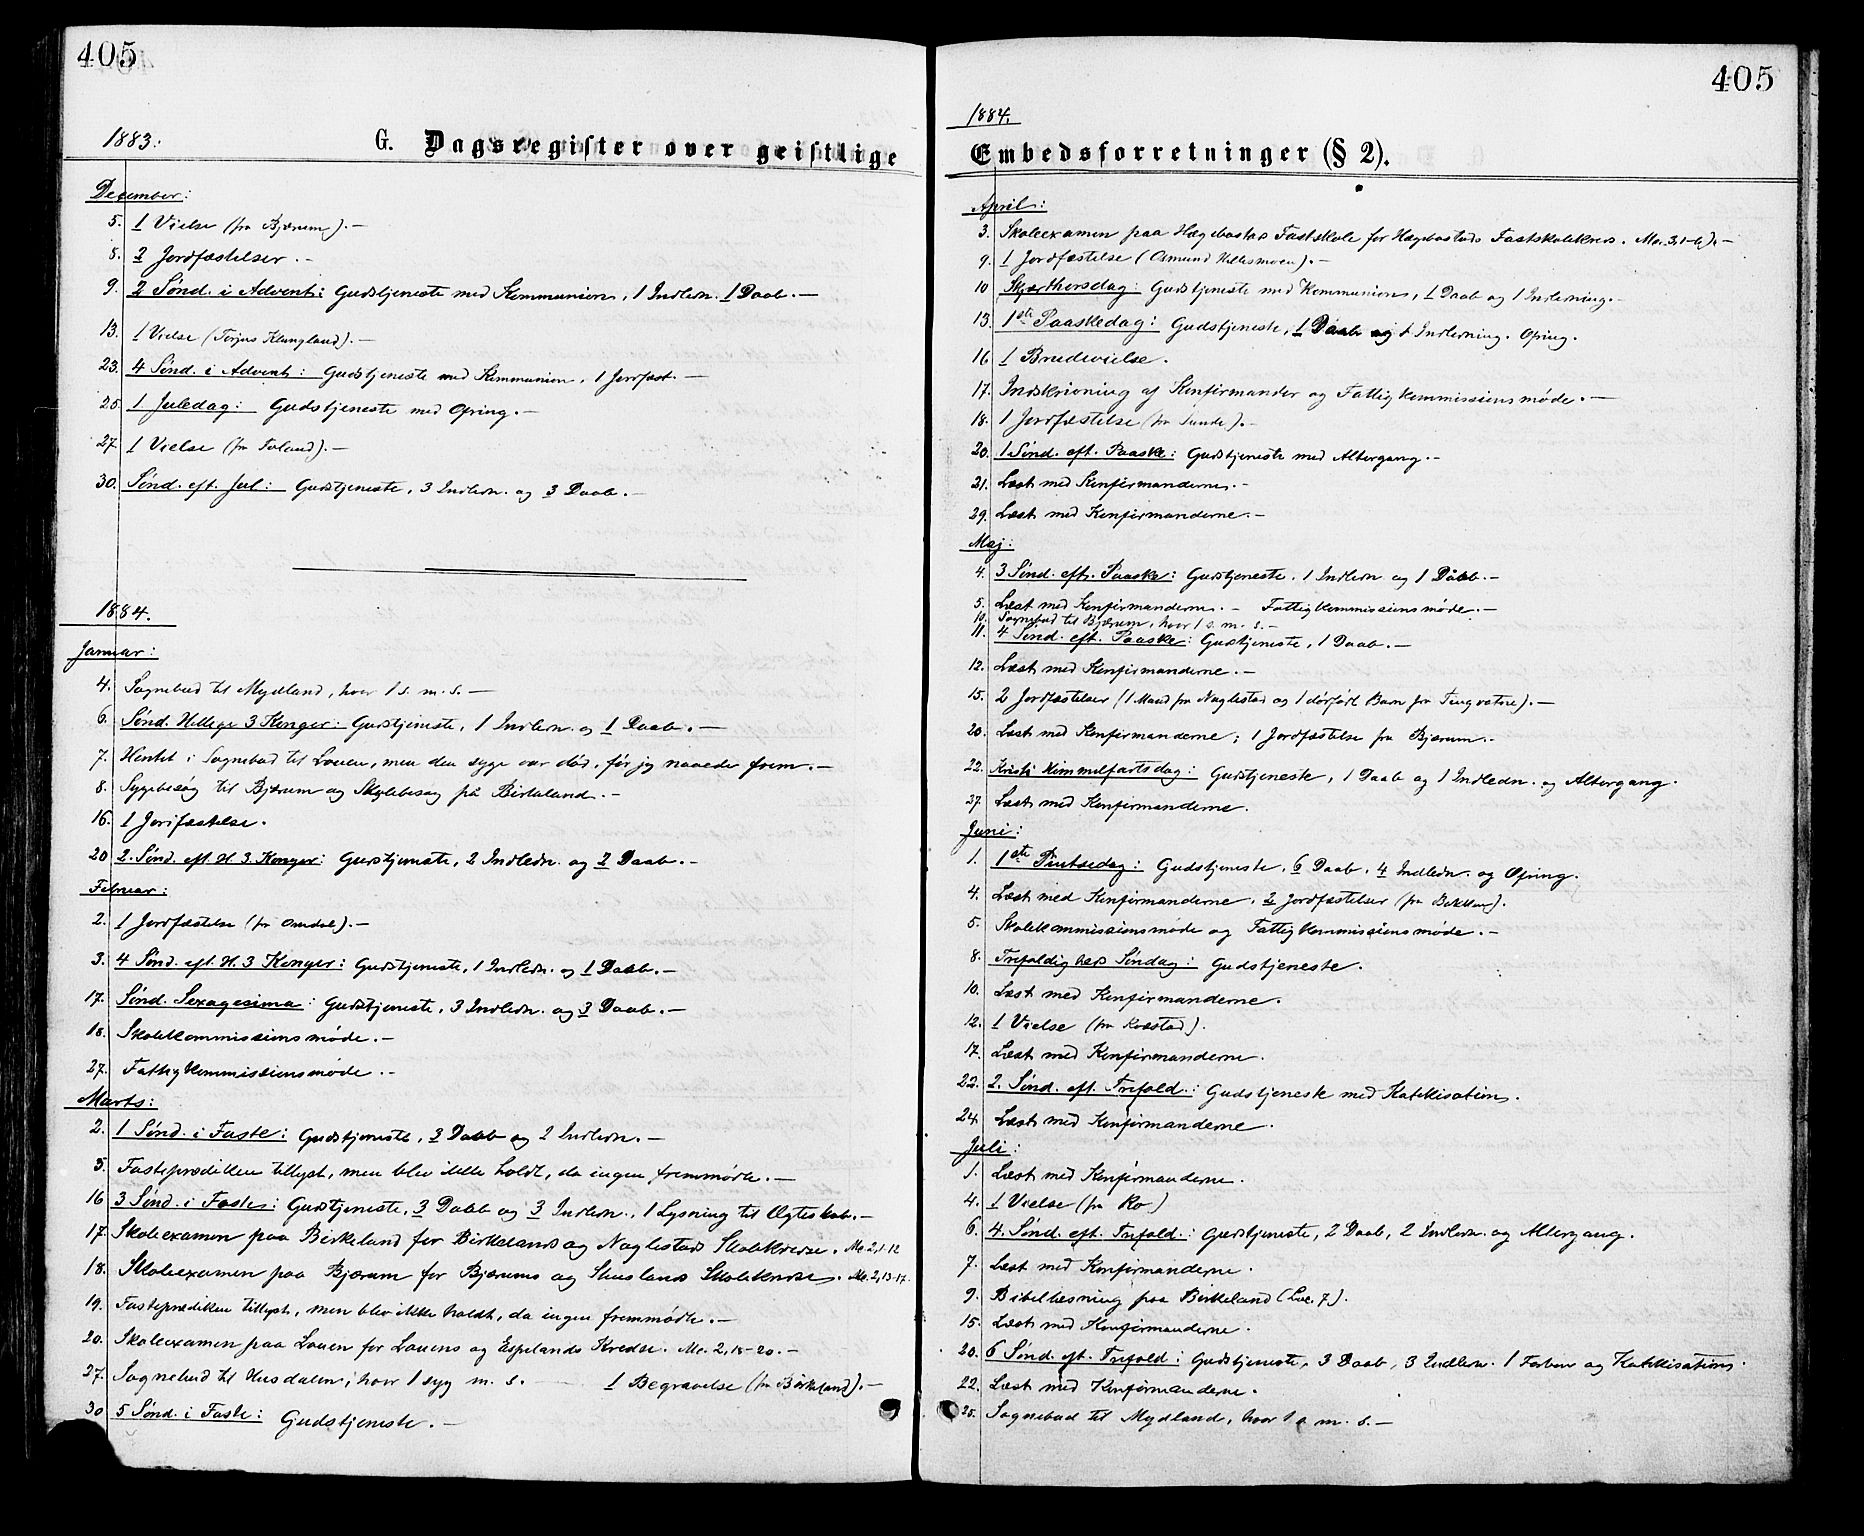 405
1883.
G. Dagsregister over geistlige
December:
5. 1 Vielse (fra Bjærum). —
8. 2 Jordfæstelser. —
9. 2 Sønd. i Advent: Gudstjeneste med Kommunion, 1 Indledn. 1 Daab. —
13. 1 Vielse (Terjus Klungland). —
23. 4 Sønd. i Advent: Gudstjeneste med Kommunion, 1 Jordfæst. —
25. 1 Juledag: Gudstjeneste med Ofring. —
27. 1 Vielse (fra). —
30. Sønd. eft. Jul: Gudstjeneste, 3 Indledn. og 3 Daab. —
1884.
Januar:
4. Sognebud til Mydland, hvor 1 s. m. s. —
6. Sønd. Hellige 3 Konger: Gudstjeneste, 1 Indledn. og 1 Daab. —
7. Hentet i Sognebud til Louen, men den syge var død, før jeg naaede frem. —
8. Sygebesøg til Bjærum og Skolebesøg på Birkeland. —
16. 1 Jordfæstelse.
20. 2. Sønd. eft. H. 3. Konger: Gudstjeneste, 2 Indledn. og 2 Daab. —
Februar:
2. 1 Jordfæstelse (fra Omdal). —
3. 4 Sønd. eft. H. 3 Konger: Gudstjeneste, 1 Indledn. og 1 Daab. —
17. Sønd. Sexagesima: Gudstjeneste, 3 Indledn. og 3 Daab. —
18. Skolekommissionsmøde. —
27. Fattigkommissionsmøde. —
Marts:
2. 1 Sønd. i Faste: Gudstjeneste, 3 Daab og 2 Indledn. —
5. Fasteprædiken tillyst, men blev ikke holdt, da ingen fremmødte. —
16. 3 Sønd. i Faste: Gudstjeneste, 3 Daab og 3 Indledn., 1 Lysning til Ægteskab. —
17. Skoleexamen paa Birkeland for Birkelands og Naglestads Skolekredse. Mc. 2,1-12
18. Skoleexamen paa Bjærum for Bjærums og Skolekredse. Mc. 2,13-17.
19. Fasteprædiken tillyst, men blev ikke holdt, da ingen fremmødte. —
20. Skoleexamen paa Louen for Louens og Espelands Kredse. Mc. 2,18-20. —
27. Sognebud til Husdalen, hvor 1 syg m. s. — 1 Begravelse (fra Birkeland). —
30. 5 Sønd. i Faste: Gudstjeneste. —
405
1884.
Embedsforretninger (§ 2).
April:
3. Skoleexamen paa Hægebostad Fastskole for Hægebostads Fastskolekreds. Mc. 3,1-6). —
9. 1 Jordfæstelse (Osmund Hellesmoen). —
10. Skjærthorsdag: Gudstjeneste med Kommunion, 1 Daab og 1 Indledning. —
13. 1ste Paaskedag: Gudstjeneste, 1 Daab og 1 Indledning. Ofring.
16. 1 Brudevielse.
17. Indskrivning af Konfirmander og Fattigkommissionsmøde. —
18. 1 Jordfæstelse (fra Sunde). —
20. 1 Sønd. eft. Paaske: Gudstjeneste med Altergang. —
21. Læst med Konfirmanderne. —
29. Læst med Konfirmanderne. —
Maj:
4. 3 Sønd. eft. Paaske: Gudstjeneste, 1 Indledn. og 1 Daab. —
5. Læst med Konfirmanderne. — Fattigkommissionsmøde. —
10. Sognebud til Bjærum, hvor 1 s. m. s. —
11. 4 Sønd. eft. Paaske: Gudstjeneste, 1 Daab. —
12. Læst med Konfirmanderne. —
15. 2 Jordfæstelser (1 Mand fra Naglestad og 1 dødfødt Barn fra Tingvatne). —
20. Læst med Konfirmanderne; 1 Jordfæstelse fra Bjærum. —
22. Kristi Himmelfartsdag: Gudstjeneste, 1 Daab og 1 Indledn. og Altergang.
27. Læst med Konfirmanderne.
Juni:
1. 1ste Pintsedag: Gudstjeneste, 6 Daab, 4 Indledn. og Ofring.
4. Læst med Konfirmanderne, 2 Jordfæstelser (fra).
5. Skolekommissionsmøde og Fattigkommissionsmøde. —
8. Trefoldigheds Søndag: Gudstjeneste.
10. Læst med Konfirmanderne.
12. 1 Vielse (fra).
17. Læst med Konfirmanderne.
22. 2. Sønd. eft. Trefold.: Gudstjeneste med Katekisation.
24. Læst med Konfirmanderne.
Juli:
1. Læst med Konfirmanderne.
4. 1 Vielse (fra Ro)
6. 4. Sønd. eft. Trefold.: Gudstjeneste, 2 Daab, 2 Indledn. og Altergang.
7. Læst med Konfirmanderne.
9. Bibellæsning paa Birkeland (Luc. 7).
15. Læst med Konfirmanderne.
20. 6 Sønd. eft. Trefold: Gudstjeneste, 3 Daab, 3 Indledn. 1 og Katekisation.
22. Læst med Konfirmanderne.
25. Sognebud til Mydland, hvor 1 s. m. s. —